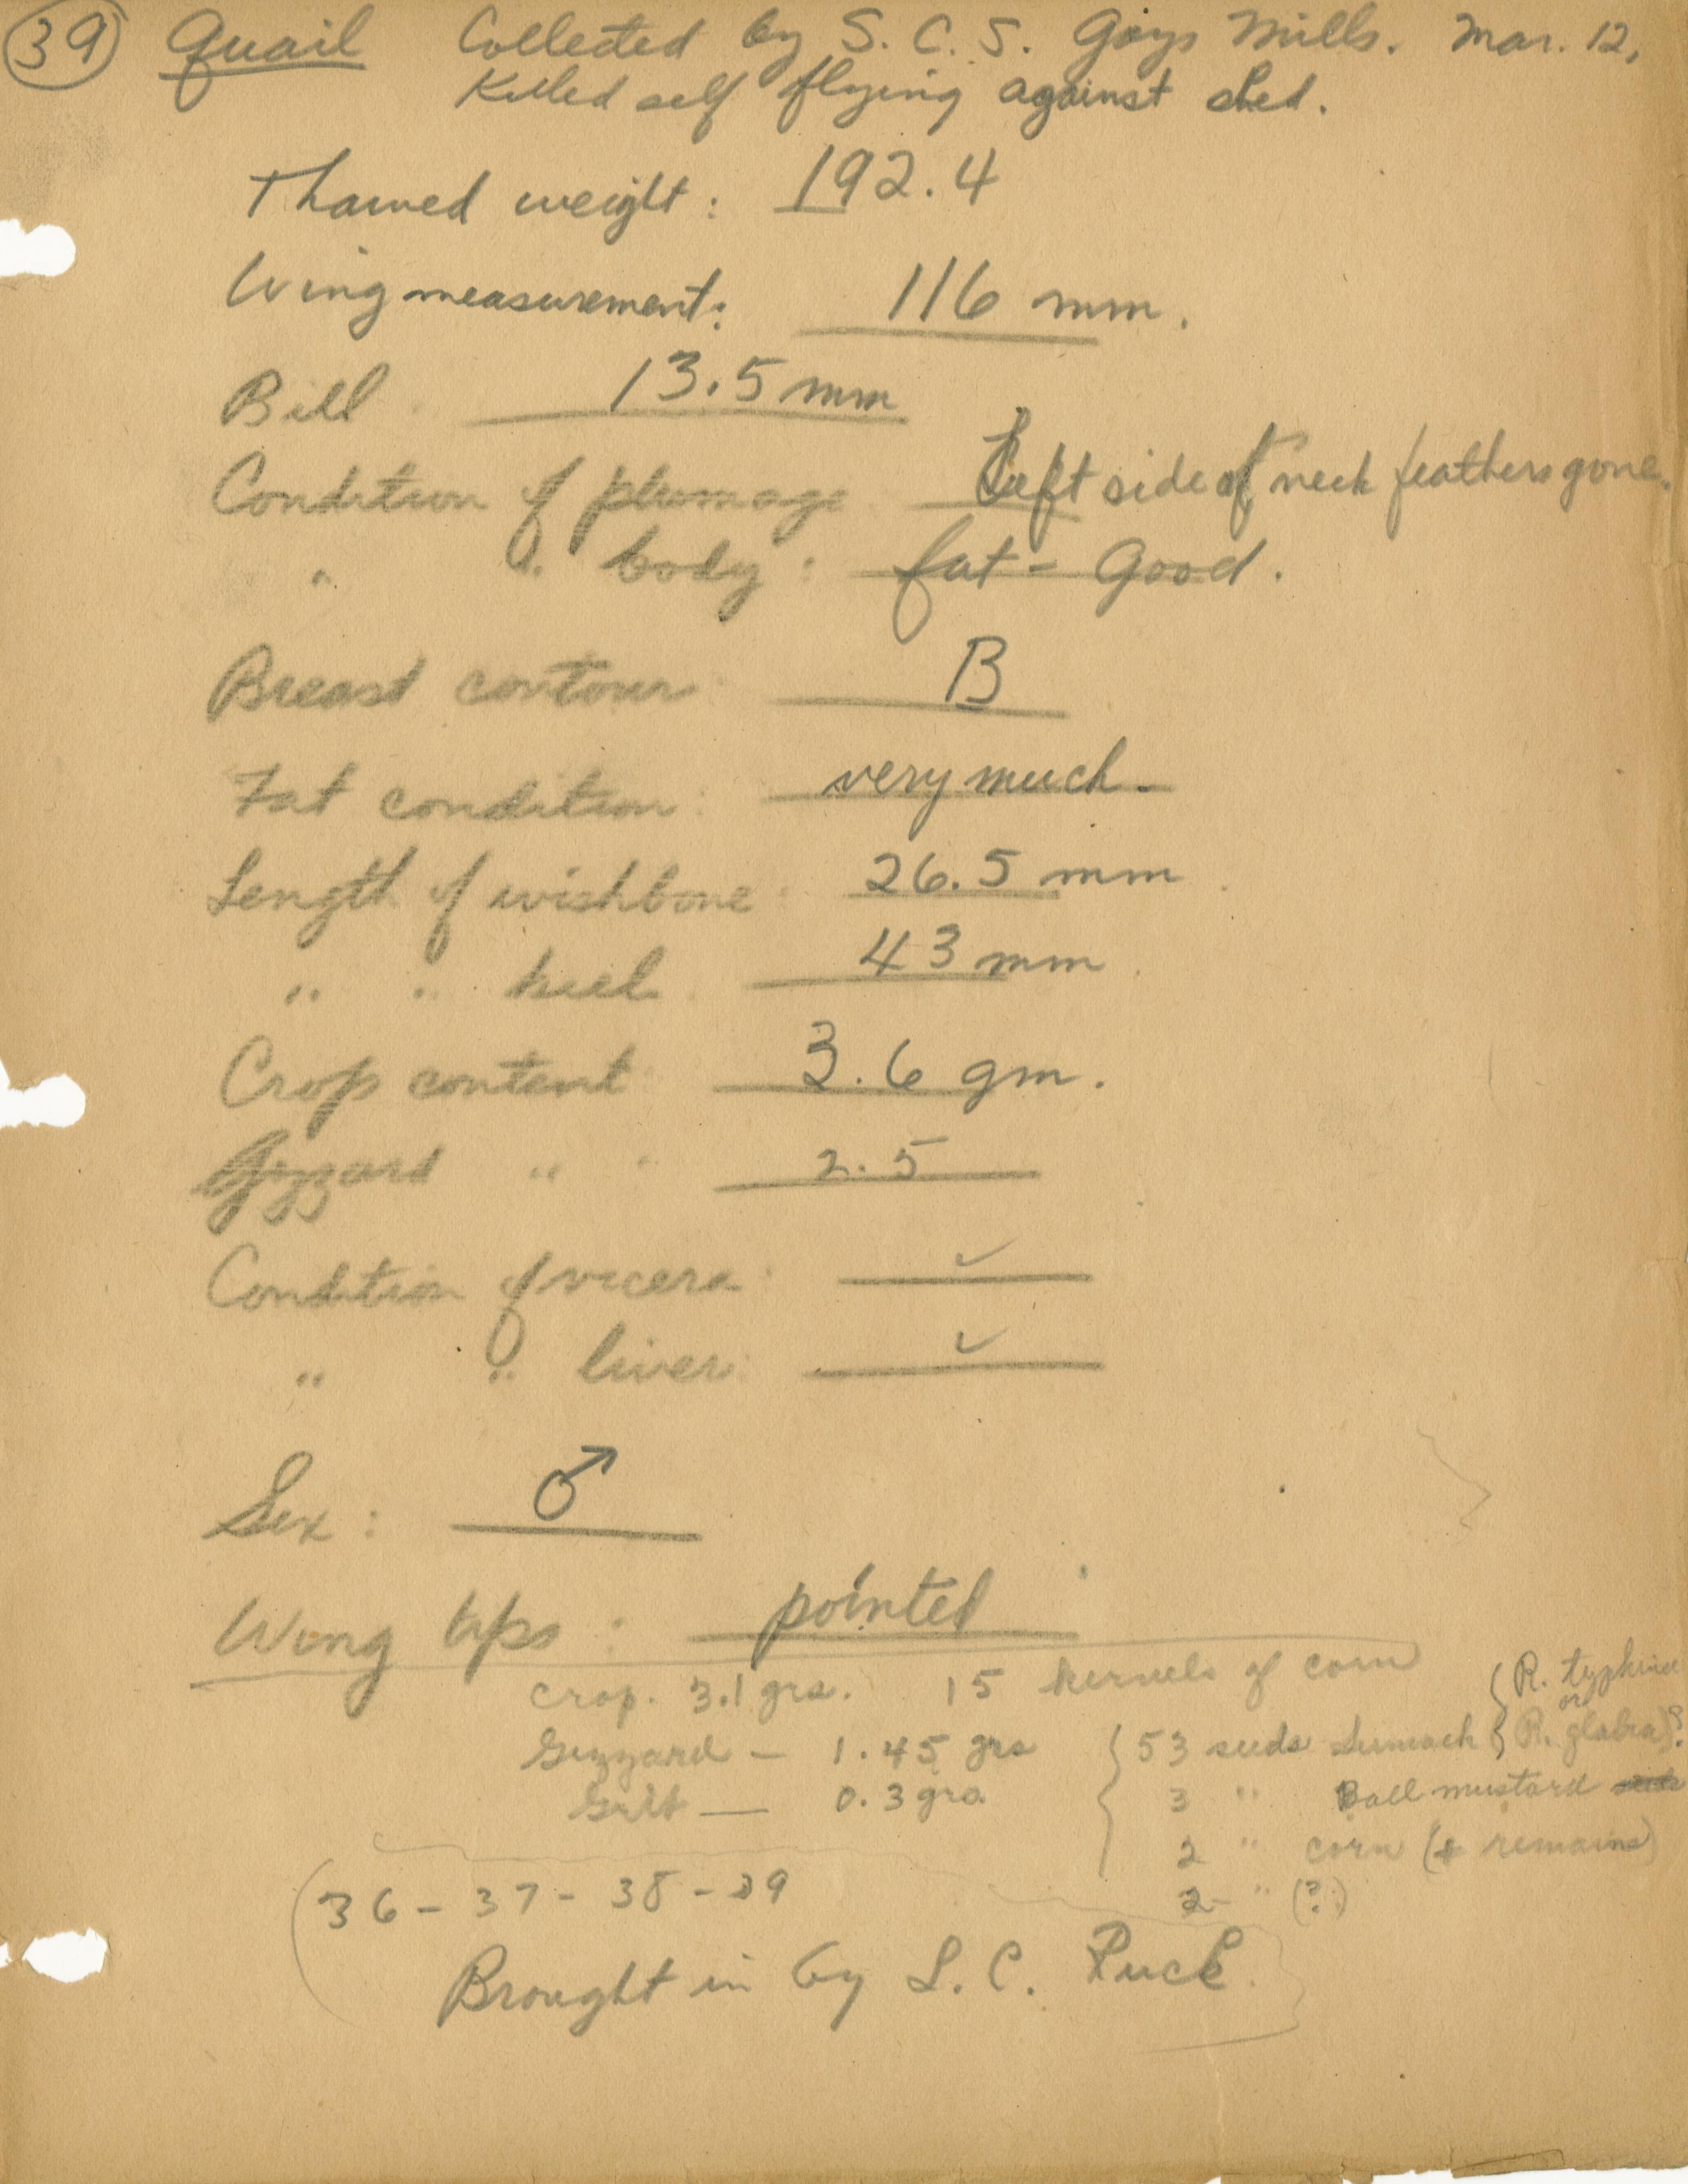 39 Quail Collected by S. C. S. Gays Mills. Mar. 12,
Killed self flying against shed.
Thawed weight: 192.4
Wing measurement: 116 mm.
Bill 13.5 mm
Condition of plumage Left side of neck feathers gone.
" " body: fat - Good.
Breast contour B
Fat condition: very much -
Length of wishbone: 26.5 mm
" " keel 43 mm
Crop content 3.6 gm.
Gizzard " 2.5
Condition of vicera: ✓
" " liver: ✓
Sex: ♂
Wing tips: pointed
Crop. 3.1 grs. 15 kernels of corn
Gizzard — 1.45 grs { 53 seeds Sumach { R. typhina or R. glabra }?
Grit — 0.3 grs 3 " Ball mustard seeds
2 " corn (& remains)
2 " (?)
(36 - 37 - 38 - 39
Brought in by L. C.